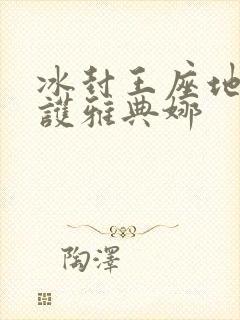 冰封王座地
護雅典娜
陶澤